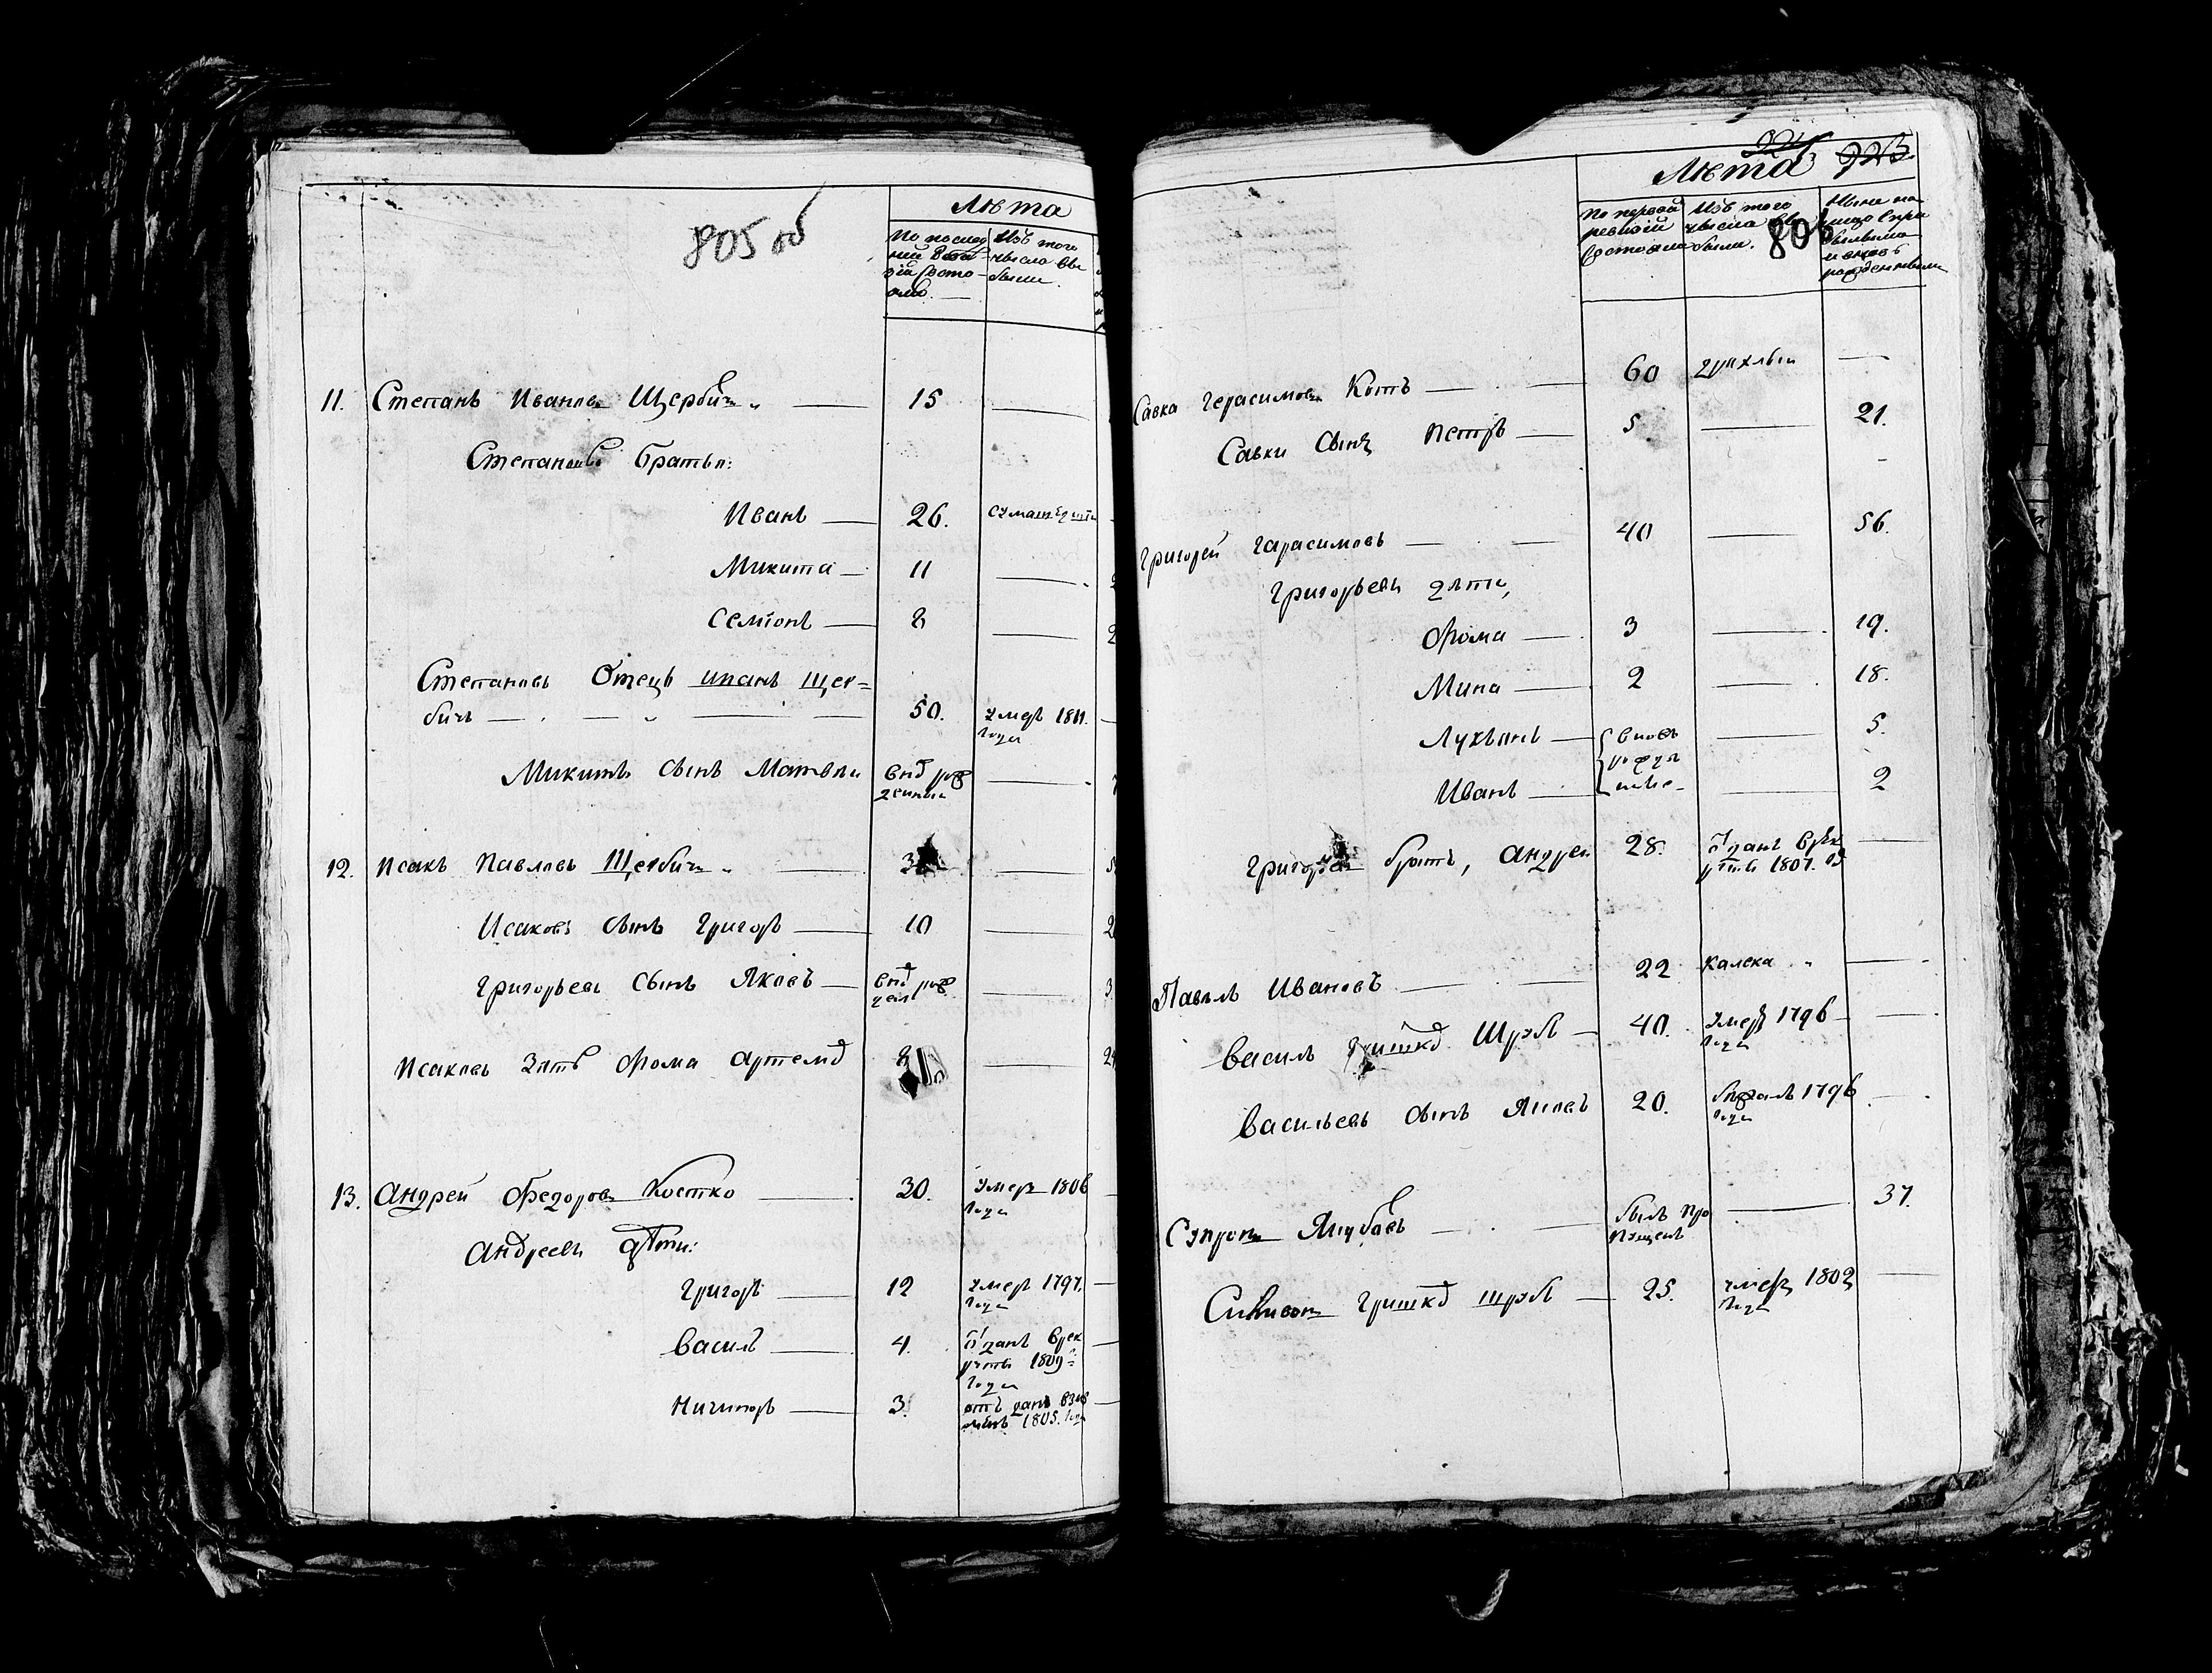 805 об
Лѣта
По послед
Изъ того
числа вы
были.
11. Степанъ Ивановъ Щербичъ 15
Степановы братья:
Иванъ 26. сумашедшій
Микита 11
Семіонъ 8
Степановъ Отецъ Иванъ Щер=
бичъ 50. умеръ 1811.
года
Микиты сынъ Матвѣй
12. Исакъ Павловъ Щербичъ
Исаковъ сынъ Григоръ 10
Григорьевъ сынъ Яковъ
Исаковъ зять Фома Артемов
13. Андрей Федоровъ Костко 30. Умеръ 1806
года
Андреевы дѣти:
Григоръ 12 умеръ 1797.
года
Василь 4. Отданъ в рек
руты 1809
года
Ничипоръ 3. отъ данъ
1805. года
806
Лѣта
По первой ревизіи состояло
Изъ того числа выбыли.
Ныне на лицо
Савка Герасимовъ Котъ 60 дряхлый
Савки сынъ Петръ 5 21.
Григорей Гарасимовъ 40 56.
Григорьевы дѣти,
Фома 3 19.
Мина 2 18.
Лукьянъ вновь 5.
Иванъ 2
Григорьевъ братъ, Андрей 28. Отданъ в рек
руты 1807.
Павелъ Ивановъ 22 калека
Василь Гришков 40. Умеръ 1796
года
Васильевъ сынъ 20. 1796
года
Супронъ былъ про 37.
пущенъ
Силивонъ Гришков 25. умеръ 1802
года